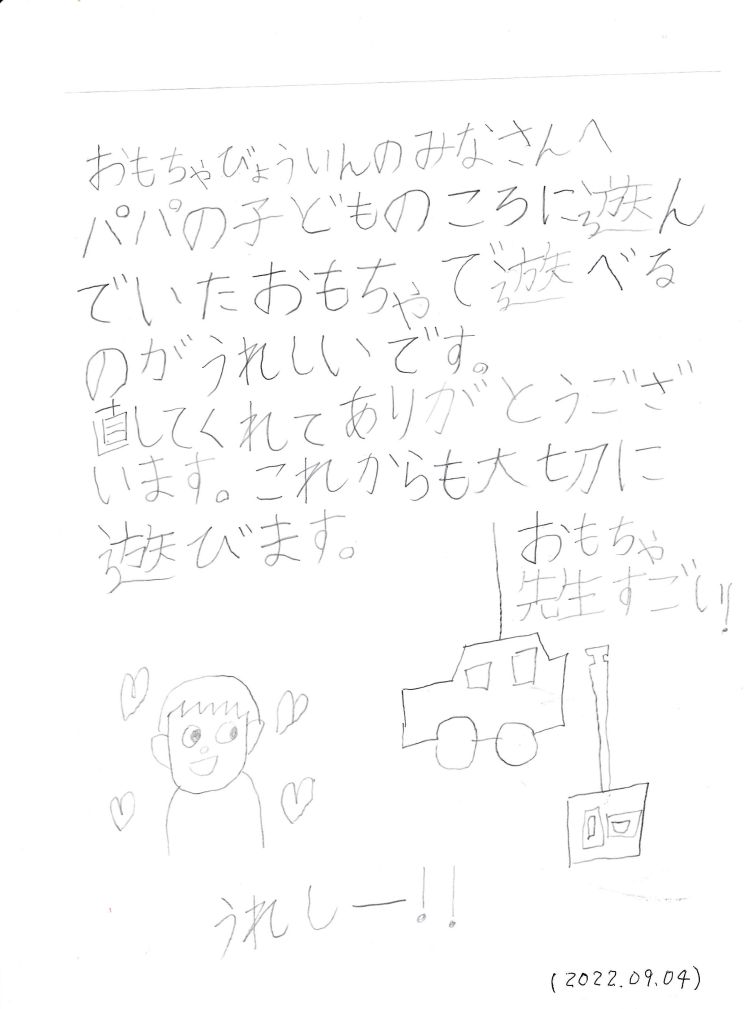 おもちゃびょういんのみなさんへ
パパの子どものころに遊ん
でいたおもちゃで遊べる
のがうれしいです。
直してくれてありがとうござ
います。これからも大切に
遊びます。
おもちゃ
先生すごい!!
うれしー!!
(2022.09.04)